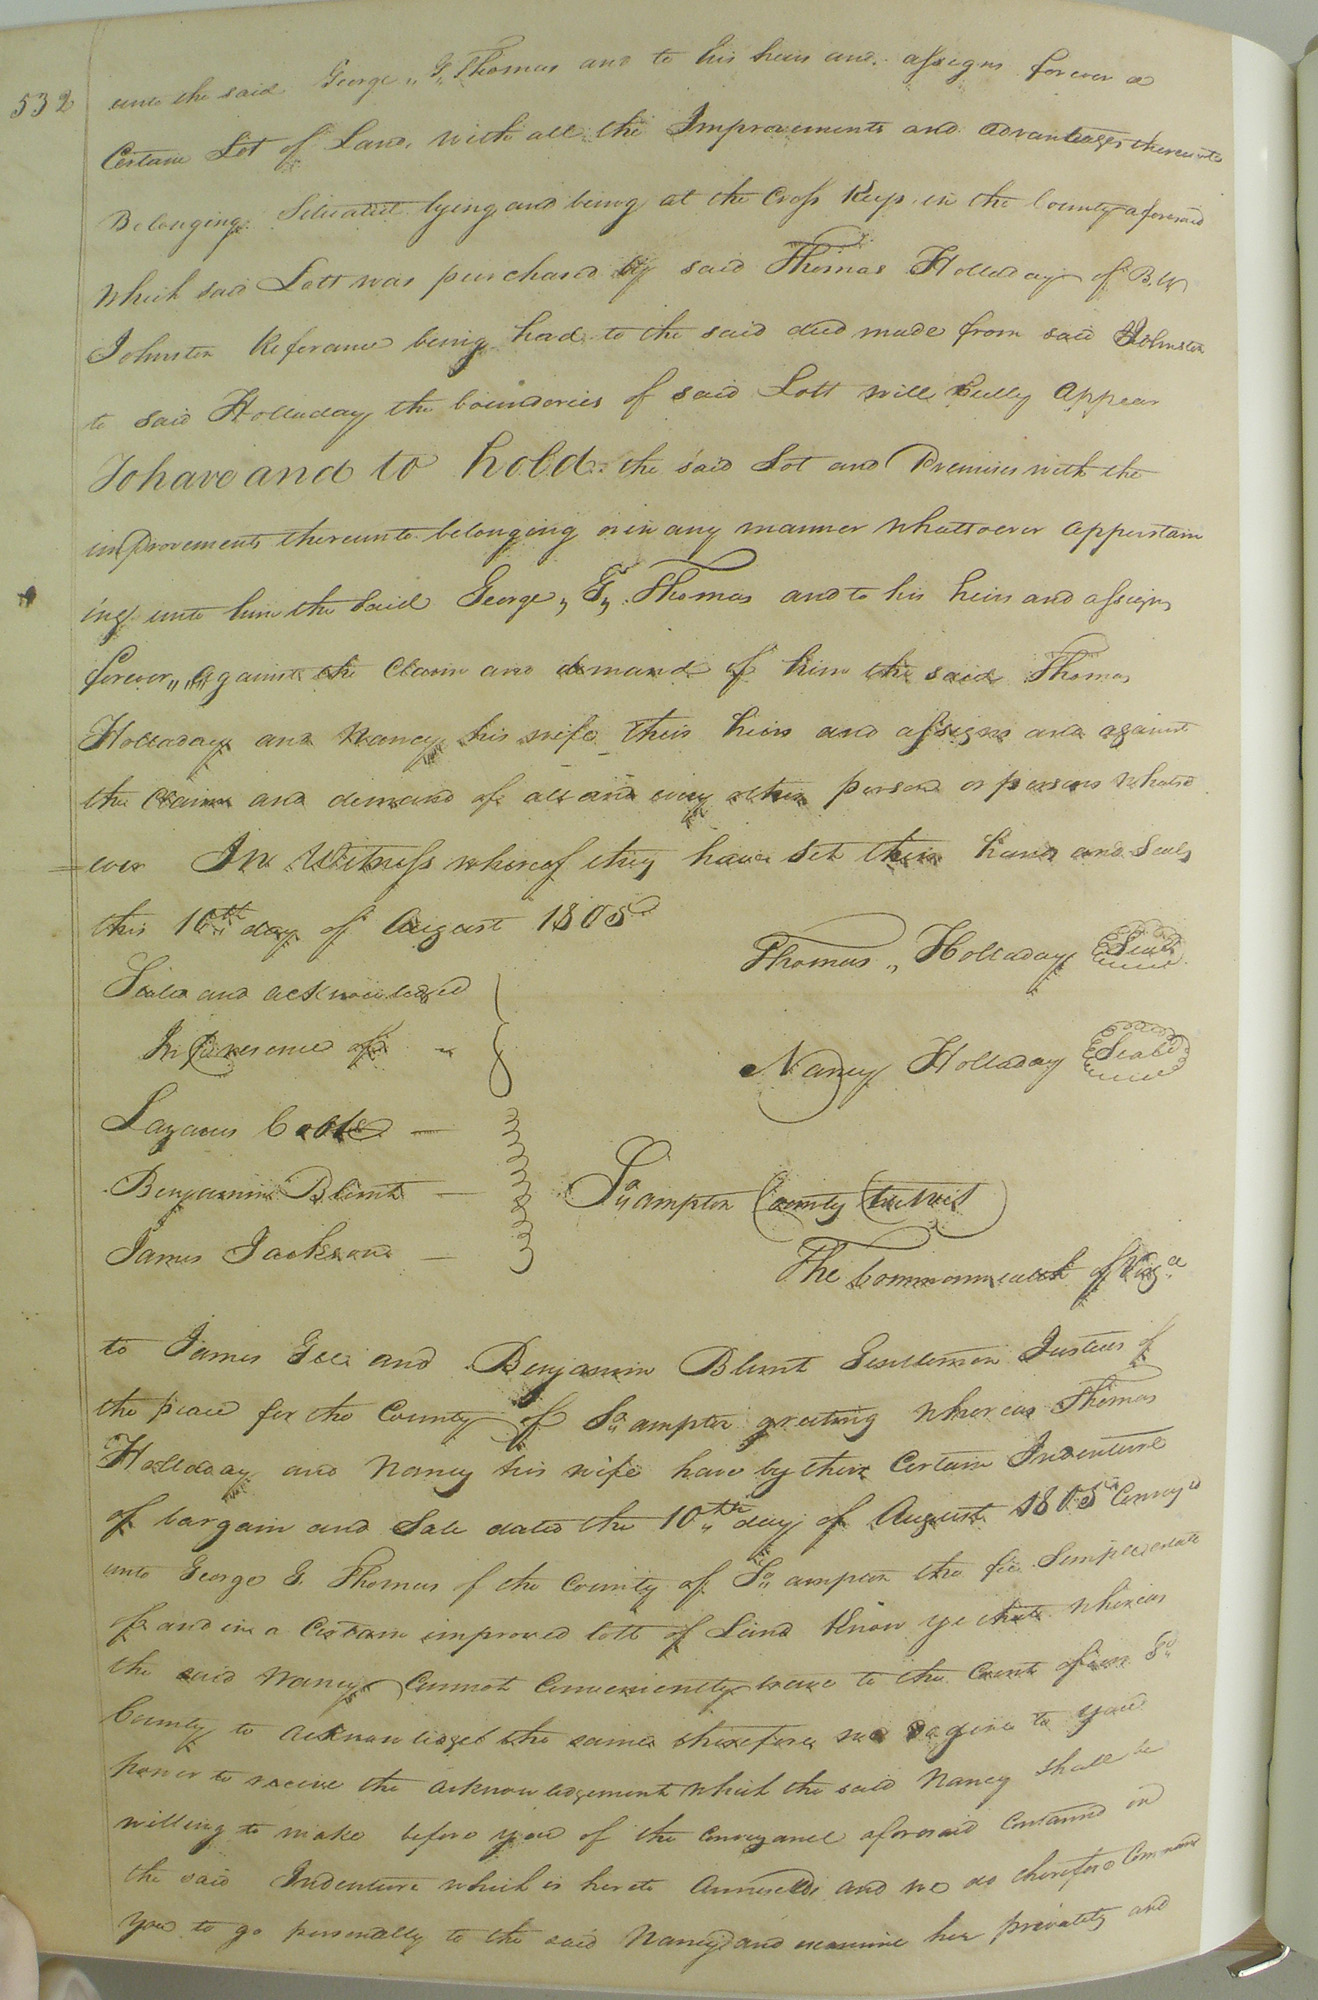 532
unto the said George, G, Thomas and to his heirs and assigns forever a
Certain Lot of Land, with all the Improvements and advantages thereunto
Belonging Situated lying and being at the Cross Keys in the County aforesaid
Which said Lott was purchased by said Thomas Holladay of B. W
Johnston Referance being had to the said deed made from said Johnston
to said Holladay the boundories of said Lott will Fully appear
To have and to hold. the said Lot and Premises with the
improvements thereunto belonging or in any manner whatsoever appertain
ing unto him the Said George, G, Thomas and to his heirs and assigns
forever,, against the Claim and demand of him the said Thomas
Holladay and Nancy his wife their heirs and assigns and against
the Claim and demand of all and every other person or persons whatso
=ever In Witness whereof they have set their hands and Seals
this 10th day of August 1805
Thomas,, Holladay Seal
Seald and acknowledged
In presence of
Nancy Holladay Seald
Lazarus Cobb
Benjamin Blunt
So,,ampton County to wit
James Jackson
The Commonwealth of Virg.a
to James Gee and Benjamin Blunt Gentlemen Justices of
the peace for the County of So,,ampton greeting whereas Thomas
Holladay and Nancy his wife have by their Certain Indenture
of bargain and Sale dated the 10th day of August 1805 Convey'd
unto George G. Thomas of the County of So,,ampton the fee Simple estate
of and in a Certain improved lott of Land Know ye that whereas
the said Nancy Cannot Conveniently to the Court of our Sd
County to acknowledge the same therefore we do give to you
power to receive the acknowledgement which the said Nancy shall be
willing to make before you of the Conveyance aforesaid Contained in
the said Indenture which is hereto and we do therefore Command
you to go personally to the said Nancy and examine her privately and